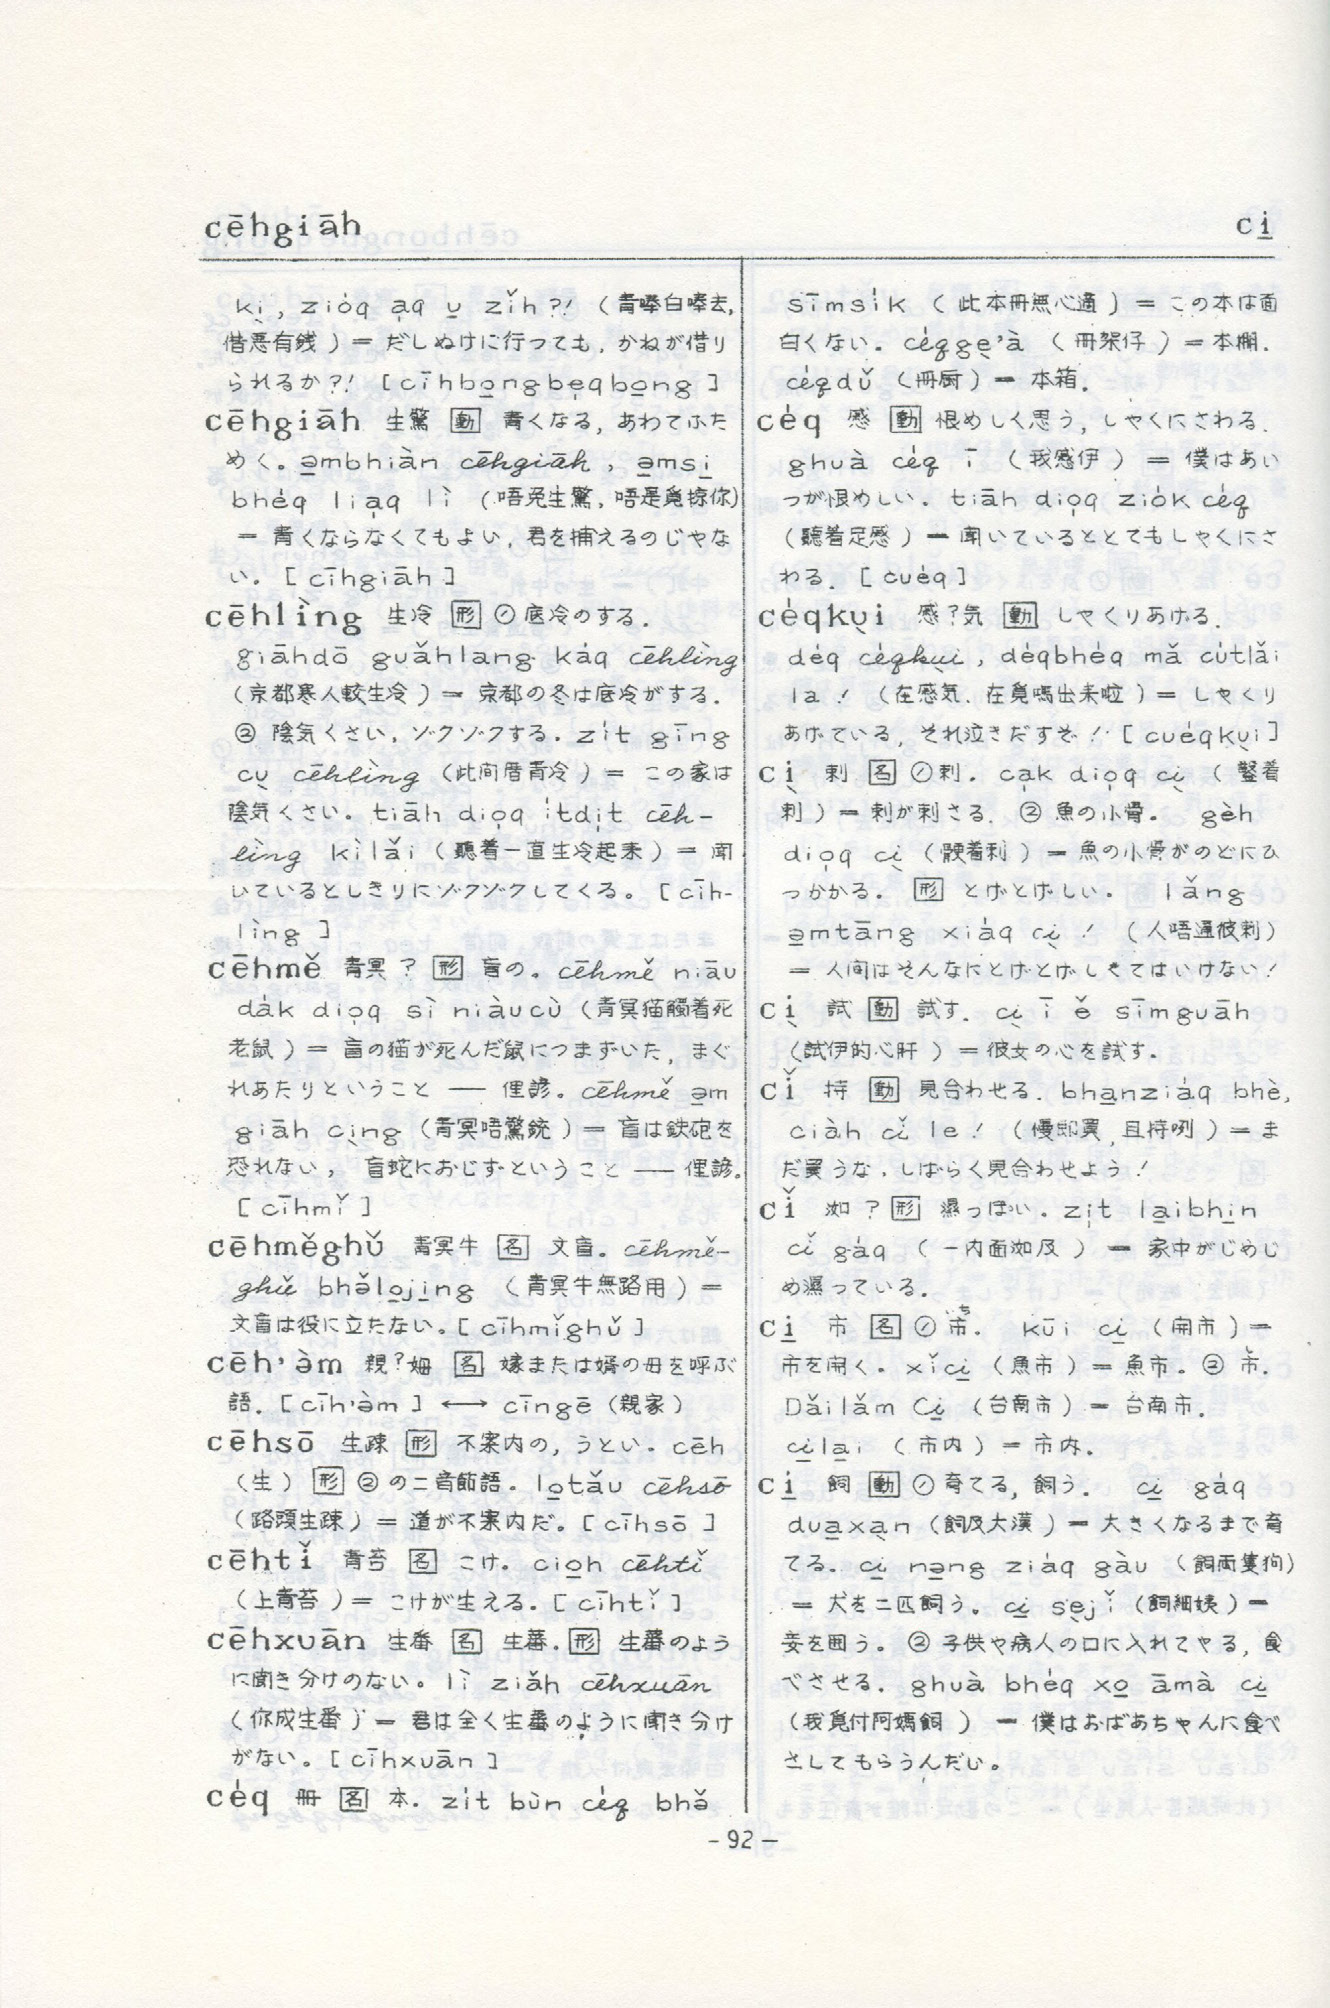 cēhgiāh
ci̱
kị, zióq ạq u̱ zǐh?! (青嗙白嗙去,
借悪有銭) = だしぬけに行っても, かねが借り
られるか?! [cīhbo̱ngbẹqbo̱ng]
cēhgiāh 生驚 [動] 青くなる, あわてふた
めく。ə̱mbhiàn cēhgiāh, ə̱msi̱
bhéq liạq lì (唔免生驚, 唔是覓掠你)
= 青くならなくてもよい, 君を捕えるのじゃな
い。[cīhgiāh]
cēhlìng 生冷 [形] ① 底冷のする.
giāhdō guǎhlang káq cēhlìng
(京都寒人較生冷) = 京都の冬は底冷がする.
② 陰気くさい, ゾクゾクする. zít gīng
cụ cēhlìng (此间厝青冷) = この家は
陰気くさい. tiāh diọq ítdịt cēh-
lìng kìlǎi (聽着一直生冷起来) = 聞
いているとしきりにゾクゾクしてくる。[cīh-
lìng]
cēhmě 青冥? [形] 盲の。cēhmě niāu
dák diọq sì niàucù (青冥猫觸着死
老鼠) = 盲の猫が死んだ鼠につまずいた, まぐ
れあたりということ ── 俚諺。cēhmě ə̱m
giāh cịng (青冥唔驚銃) = 盲は鉄砲を
恐れない, 盲蛇におじずということ ── 俚諺。
[cīhmǐ]
cēhměghǔ 青冥牛 [名] 文盲。cēhmě-
ghǔ bhǒlo̱ji̱ng (青冥牛無路用) =
文盲は役に立たない。[cīhmǐghǔ]
cēh'àm 親?姆 [名] 嫁または婿の母を呼ぶ
語. [cīh'àm] ⟷ cīngē (親家)
cēhsō 生疎 [形] 不案内の, うとい。cēh
(生) [形] ② の二音節語。lo̱tǎu cēhsō
(路頭生疎) = 道が不案内だ。[cīhsō]
cēhtǐ 青苔 [名] こけ. cio̱h cēhtǐ
(上青苔) = こけが生える. [cīhtǐ]
cēhxuān 生番 [名] 生蕃. [形] 生蕃のよう
に聞き分けのない。lì ziǎh cēhxuān
(你成生番) = 君は全く生蕃のように聞き分け
がない。[cīhxuān]
céq 冊 [名] 本. zít bùn céq bhǒ
sīmsík (此本冊無心適) = この本は面
白くない。céqgẹ'à (冊架仔) = 本棚.
céqdǔ (冊厨) = 本箱.
céq 感 [動] 恨めしく思う, しゃくにさわる.
ghuà céq ī (我感伊) = 僕はあい
つが恨めしい. tiāh diọq ziók céq
(聽着足感) = 聞いているととてもしゃくにさ
わる. [cuéq]
céqkụi 感?気 [動] しゃくりあげる.
déq céqkụi, déqbhéq mǎ cútlǎi
la! (在感気, 在覓嗎出来啦) = しゃくり
あげている, それ泣きだすぞ! [cuéqkụi]
cị 刺 [名] ① 刺. cạk diọq cị (鑿着
刺) = 刺が刺さる. ② 魚の小骨。gèh
diọq cị (骾着刺) = 魚の小骨がのどにひ
っかかる. [形] とげとげしい. lǎng
ə̱mtāng xiáq cị! (人唔通彼刺)
= 人间はそんなにとげとげしくてはいけない!
cị 試 [動] 試す. cị ī ě sīmguāh
(試伊的心肝) = 彼女の心を試す.
cǐ 持 [動] 見合わせる. bha̱nziáq bhè,
ciàh cǐ le! (慢即買, 且持咧) = ま
だ買うな, しばらく見合わせよう!
cǐ 洳? [形] 濕っぽい. zịt la̱ibhi̱n
cǐ gáq (一内面洳及) = 家中がじめじ
め濕っている.
ci̱ 市 [名] ① 市. kūi ci̱ (開市) =
市を開く. xǐci̱ (魚市) = 魚市. ② 市.
Dǎilǎm Ci̱ (台南市) = 台南市.
ci̱lai (市内) = 市内.
ci̱ 飼 [動] ① 育てる, 飼う. ci̱ gáq
dua̱xạn (飼及大漢) = 大きくなるまで育
てる. ci̱ nə̱ng ziáq gàu (飼両隻狗)
= 犬を二匹飼う. ci̱ sẹjǐ (飼細姨) =
妾を囲う。② 子供や病人の口に入れてやる, 食
べさせる. ghuà bhéq xo̱ āmà ci̱
(我覓付阿媽飼) = 僕はおばあちゃんに食べ
さしてもらうんだい。
- 92 -